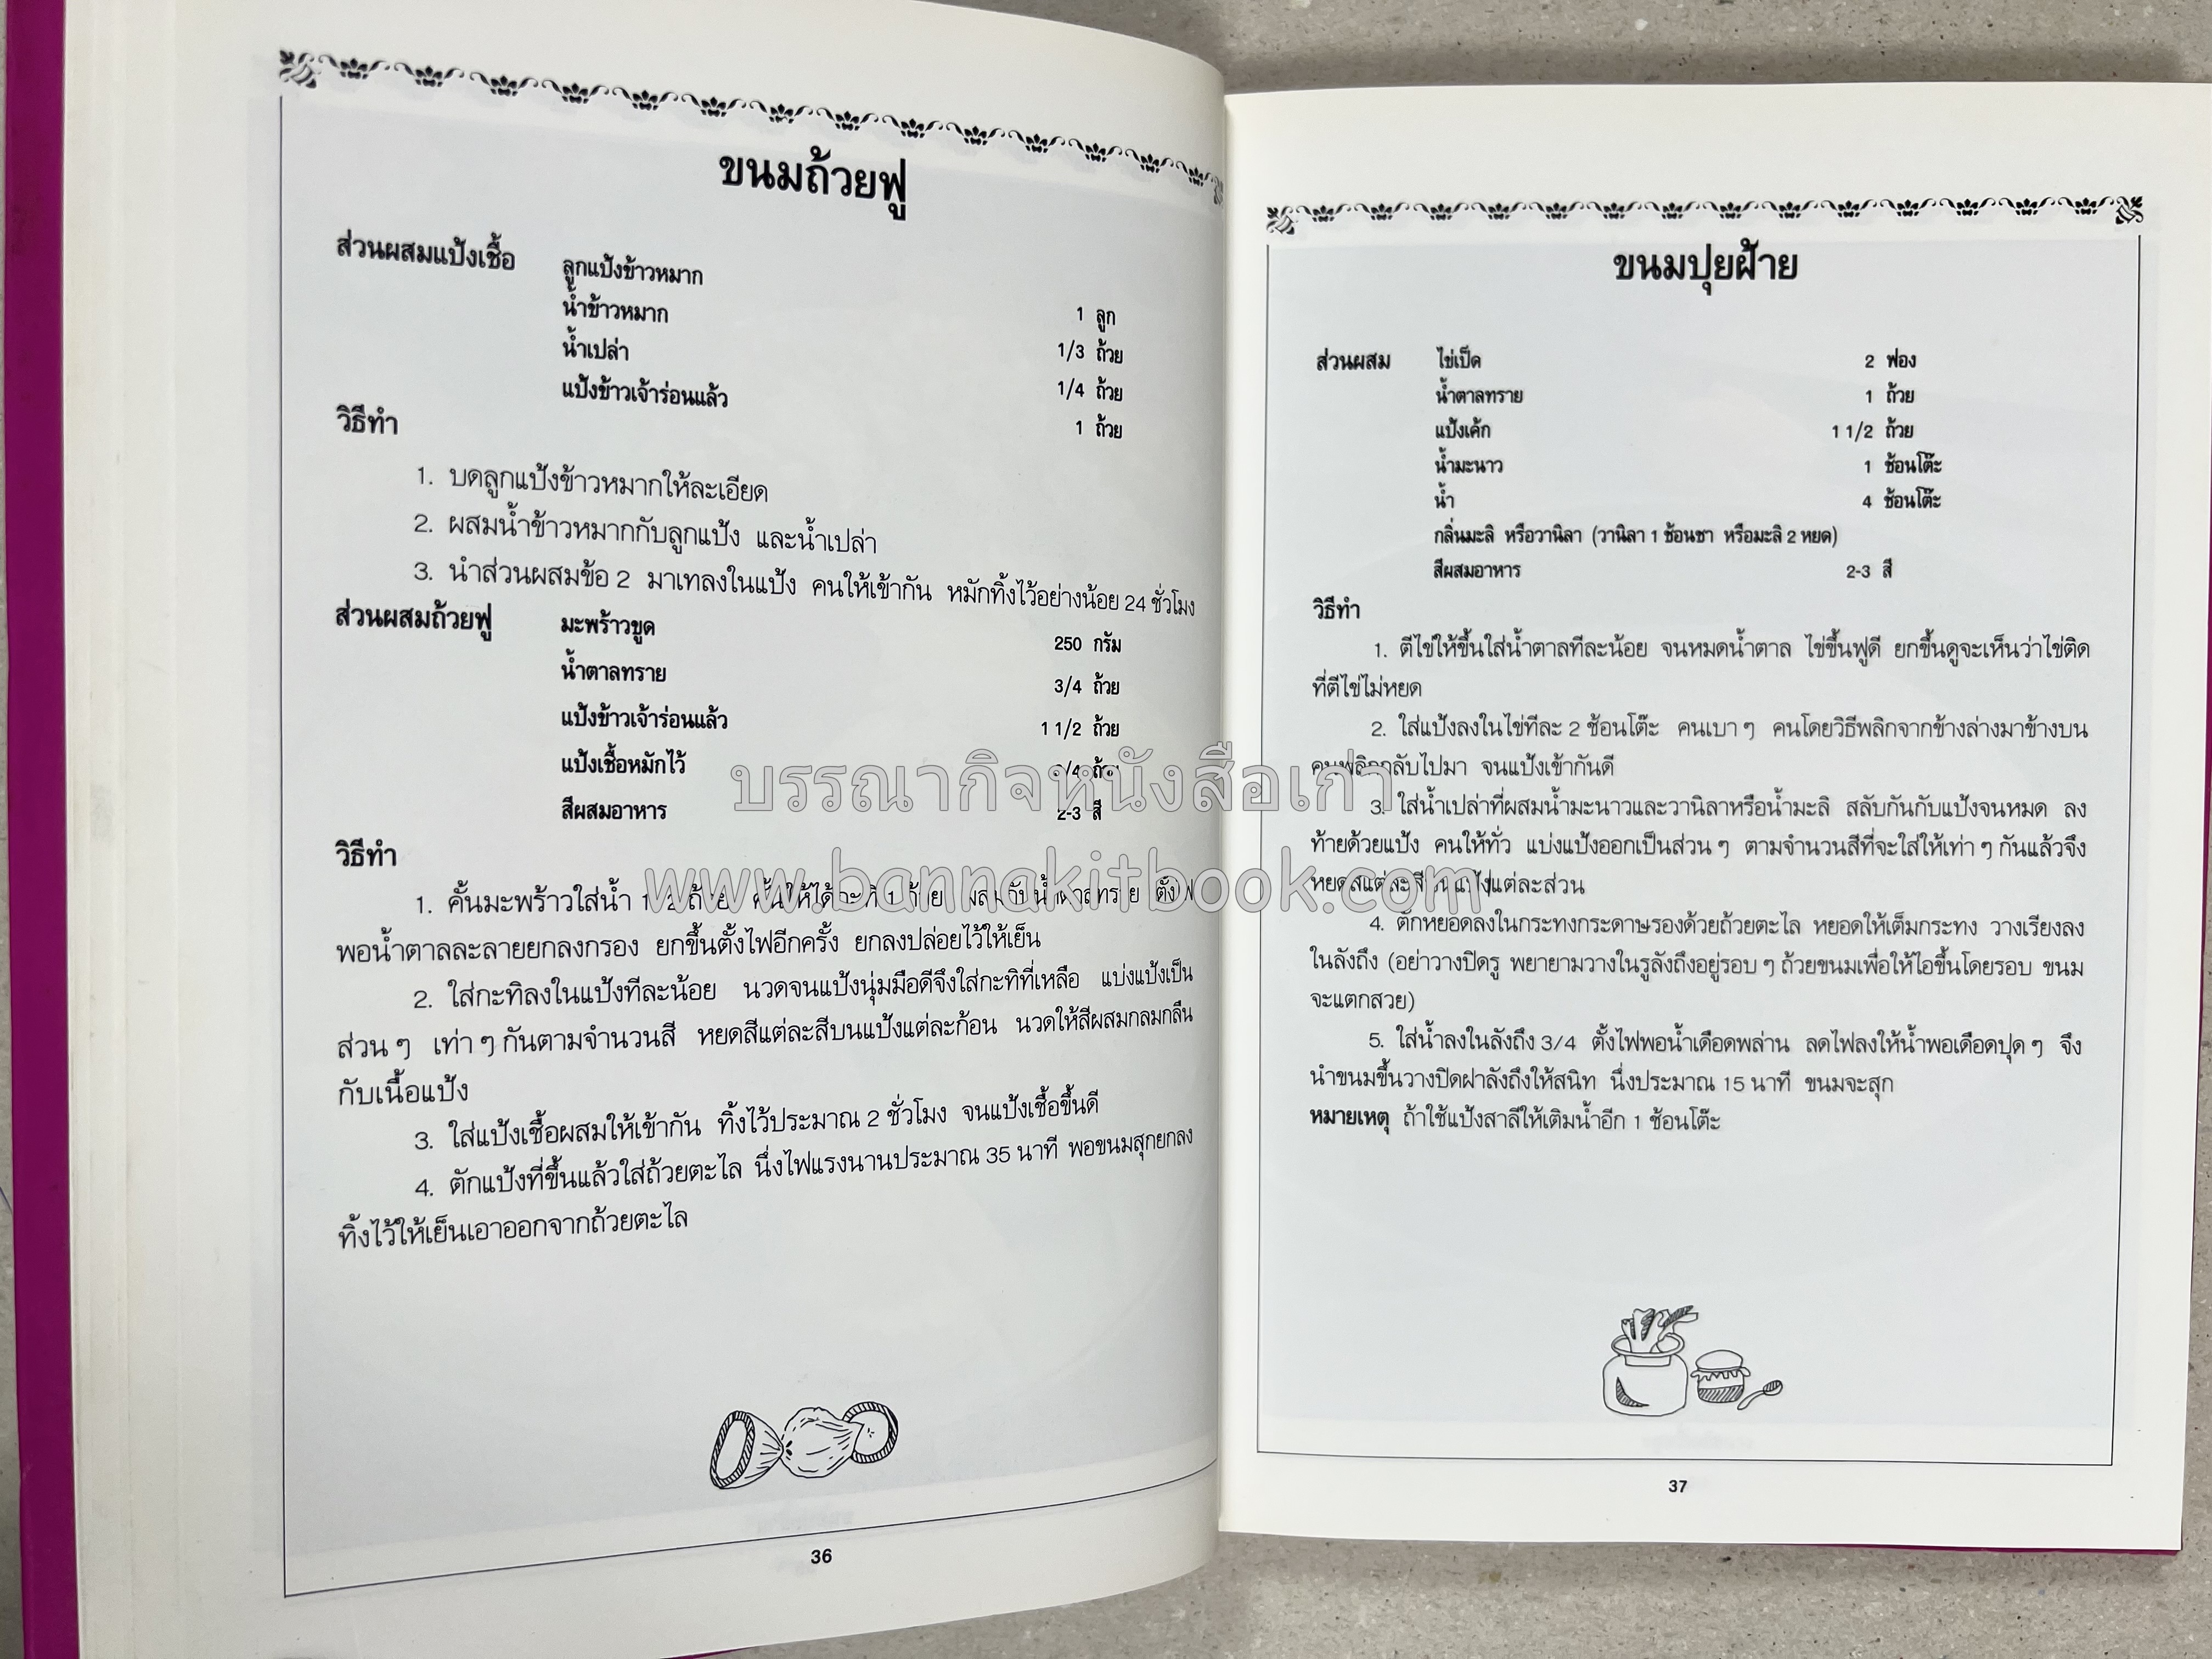 ขนมถ้วยฟู
ส่วนผสมแป้งเชื้อ
ลูกแป้งข้าวหมาก 1 ลูก
น้ำข้าวหมาก 1/3 ถ้วย
น้ำเปล่า 1/4 ถ้วย
แป้งข้าวเจ้าร่อนแล้ว 1 ถ้วย
วิธีทำ
1. บดลูกแป้งข้าวหมากให้ละเอียด
2. ผสมน้ำข้าวหมากกับลูกแป้ง และน้ำเปล่า
3. นำส่วนผสมข้อ 2 มาเทลงในแป้ง คนให้เข้ากัน หมักทิ้งไว้อย่างน้อย 24 ชั่วโมง
ส่วนผสมถ้วยฟู มะพร้าวขูด 250 กรัม
น้ำตาลทราย 3/4 ถ้วย
แป้งข้าวเจ้าร่อนแล้ว 1 1/2 ถ้วย
แป้งเชื้อหมักไว้ /4 ถ้วย
สีผสมอาหาร 2-3 สี
วิธีทำ
1. คั้นมะพร้าวใส่น้ำ
พอน้ำตาลละลายยกลงกรอง ยกขึ้นตั้งไฟอีกครั้ง ยกลงปล่อยไว้ให้เย็น
2. ใส่กะทิลงในแป้งทีละน้อย นวดจนแป้งนุ่มมือดีจึงใส่กะทิที่เหลือ แบ่งแป้งเป็น
ส่วน ๆ เท่า ๆ กันตามจำนวนสี หยดสีแต่ละสีบนแป้งแต่ละก้อน นวดให้สีผสมกลมกลืน
กับเนื้อแป้ง
3. ใส่แป้งเชื้อผสมให้เข้ากัน ทิ้งไว้ประมาณ 2 ชั่วโมง จนแป้งเชื้อขึ้นดี
4. ตักแป้งที่ขึ้นแล้วใส่ถ้วยตะไล นึ่งไฟแรงนานประมาณ 35 นาที พอขนมสุกยกลง
ทิ้งไว้ให้เย็นเอาออกจากถ้วยตะไล
36
ขนมปุยฝ้าย
ส่วนผสม ไข่เป็ด 2 ฟอง
น้ำตาลทราย 1 ถ้วย
แป้งเค้ก 1 1/2 ถ้วย
น้ำมะนาว 1 ช้อนโต๊ะ
น้ำ 4 ช้อนโต๊ะ
กลิ่นมะลิ หรือวานิลา (วานิลา 1 ช้อนชา หรือมะลิ 2 หยด)
สีผสมอาหาร 2-3 สี
วิธีทำ
1. ตีไข่ให้ขึ้นใส่น้ำตาลทีละน้อย จนหมดน้ำตาล ไข่ขึ้นฟูดี ยกขึ้นดูจะเห็นว่าไข่ติด
ที่ตีไข่ไม่หยด
2. ใส่แป้งลงในไข่ทีละ 2 ช้อนโต๊ะ คนเบา ๆ คนโดยวิธีพลิกจากข้างล่างมาข้างบน
คนพลิกกลับไปมา จนแป้งเข้ากันดี
3. ใส่น้ำเปล่าที่ผสมน้ำมะนาวและวานิลาหรือน้ำมะลิ สลับกันกับแป้งจนหมด ลง
ท้ายด้วยแป้ง คนให้ทั่ว แบ่งแป้งออกเป็นส่วน ๆ ตามจำนวนสีที่จะใส่ให้เท่า ๆ กันแล้วจึง
หยดสีแต่ละสีบนแป้งแต่ละส่วน
4. ตักหยอดลงในกระทงกระดาษรองด้วยถ้วยตะไล หยอดให้เต็มกระทง วางเรียงลง
ในลังถึง (อย่าวางปิดรู พยายามวางในรูลังถึงอยู่รอบ ๆ ถ้วยขนมเพื่อให้ไอขึ้นโดยรอบ ขนม
จะแตกสวย)
5. ใส่น้ำลงในลังถึง 3/4 ตั้งไฟพอน้ำเดือดพล่าน ลดไฟลงให้น้ำพอเดือดปุด ๆ จึง
นำขนมขึ้นวางปิดฝาลังถึงให้สนิท นึ่งประมาณ 15 นาที ขนมจะสุก
หมายเหตุ ถ้าใช้แป้งสาลีให้เติมน้ำอีก 1 ช้อนโต๊ะ
37
บรรณากิจหนังสือเก่า
www.bannakitbook.com